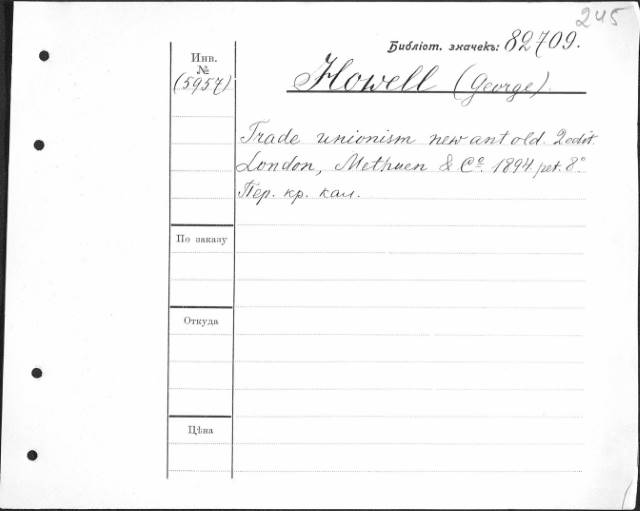 245
Библіот. значекъ: 82709.
Инв.
№
(5957)
Howell (George).
Trade unionism new ant old. 2 edit.
London, Methuen & Cº. 1894. pet. 8º
Пер. кр. кал.
По заказу
Откуда
Цѣна